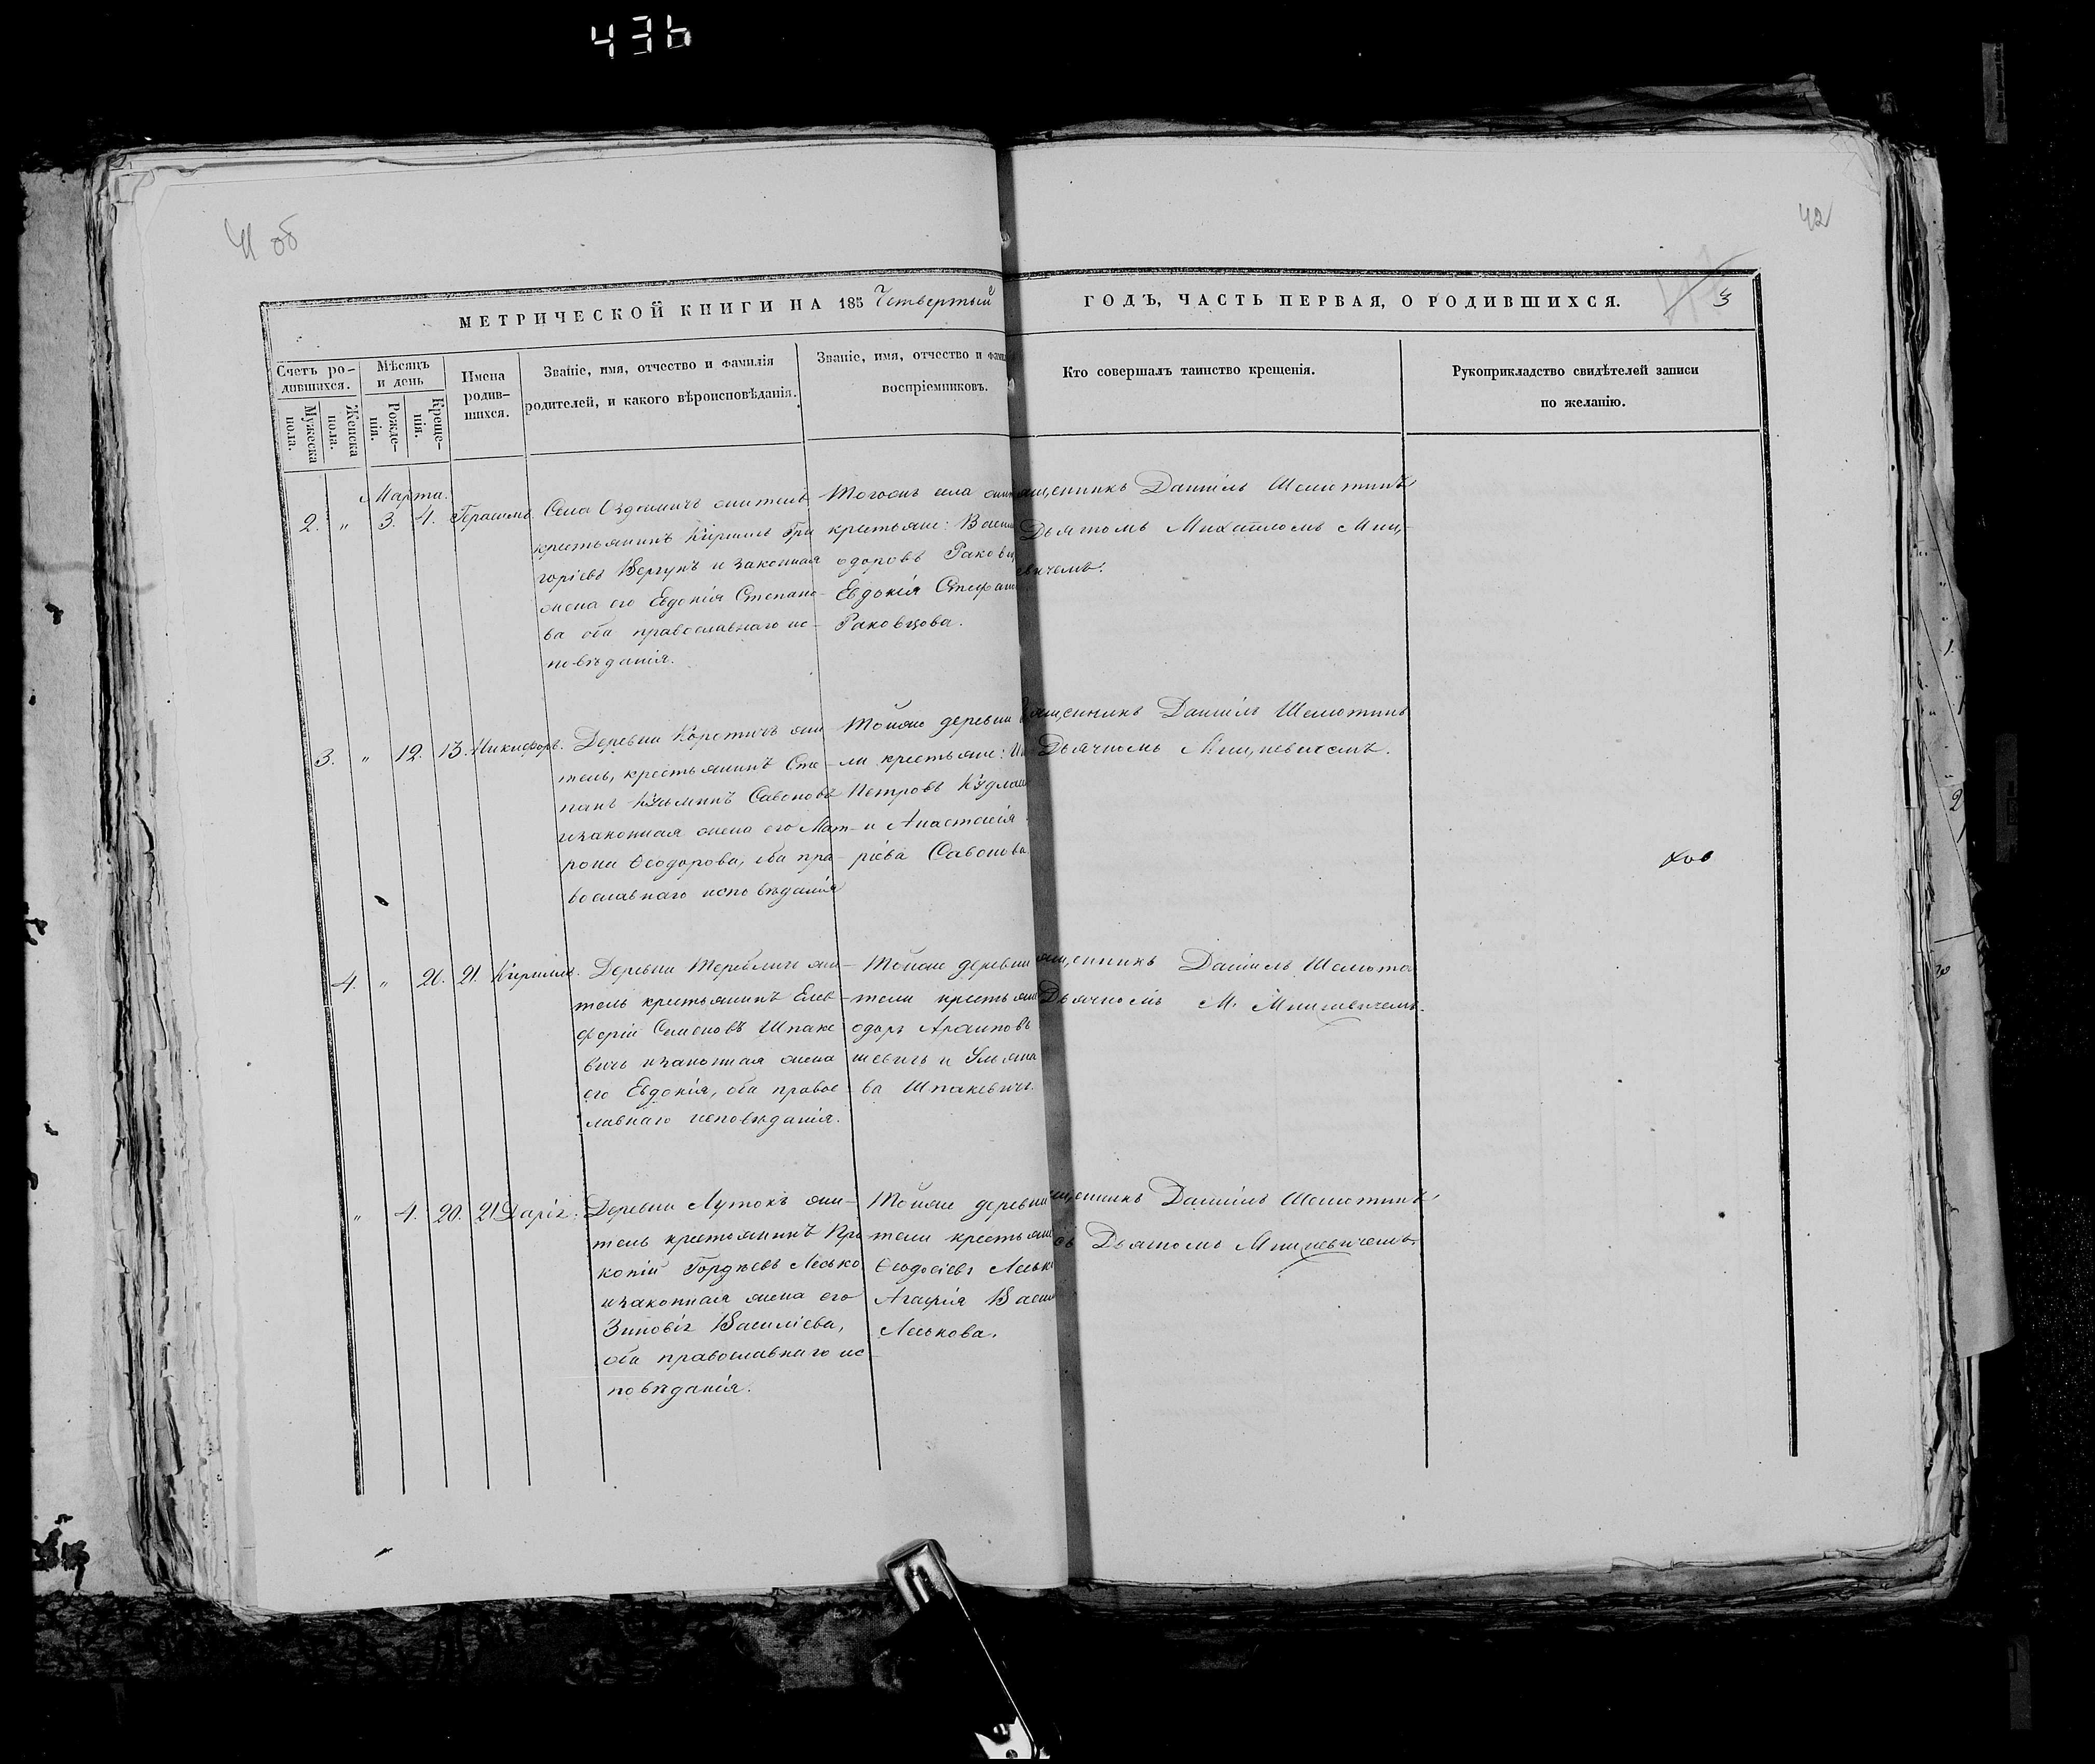 436
41 об
42
МЕТРИЧЕСКОЙ КНИГИ НА 185 Четвертый
ГОДЪ, ЧАСТЬ ПЕРВАЯ, О РОДИВШИХСЯ.
3
Счетъ ро-
дившихся.
Мужеска
пола.
Женска
пола.
Мѣсяцъ
и день
Рожде-
нія.
Креще-
нія.
Имена
родив-
шихся.
Званіе, имя, отчество и фамилія
родителей, и какого вѣроисповѣданія.
Званіе, имя, отчество и фами
воспріемниковъ.
Кто совершалъ таинство крещенія.
Рукоприкладство свидѣтелей записи
по желанію.
Марта.
2. „ 3. 4. Герасимъ.
Села житель
крестьянинъ Кириллъ Гри
горіевъ Вергунъ и законная
жена его Евдокія Степано-
ва оба православнаго ис-
повѣданія.
Тогожъ села жит
крестьяне: Васи
одоровъ Раковц
Евдокія Стефан
Раковцова.
ященникъ Даніилъ Шелютинъ
Дьячкомъ Михаиломъ Мац-
евичемъ.
3. „ 12. 13. Никифоръ.
Деревни Коротичъ жи
тель, крестьянинъ Сте-
панъ Кузьминъ Савоновъ
и законная жена его Мат-
рона Ѳеодорова, оба пра-
вославнаго исповѣданія
Тойже деревни
ли крестьяне:
Петровъ
и Анастасія
ріева Савонова
ященникъ Даніилъ Шелютинъ
Дьячкомъ
4. „ 20. 21. Кириллъ.
Деревни Теребличъ жи-
тель крестьянинъ Елев-
ферій Семеновъ Шпаке
вичъ и законная жена
его Евдокія, оба правос-
лавнаго исповѣданія.
Тойже деревни
тели крестьяне
одоръ
шевичъ и Ульяна
ва Шпакевичъ.
ященникъ Даніилъ Шелюти
Дьячкомъ М.
„ 4. 20. 21 Дарія.
Деревни Лутокъ жи-
тель крестьянинъ Про
копій Гордѣевъ Лесько
и законная жена его
Зиновія Василіева,
оба православнаго ис-
повѣданія.
Тойже деревни
тели крестьяне
Ѳеодосіевъ Леськ
Агафія Васи
Леськова.
щенникъ Даніилъ Шелютинъ
Дьячкомъ